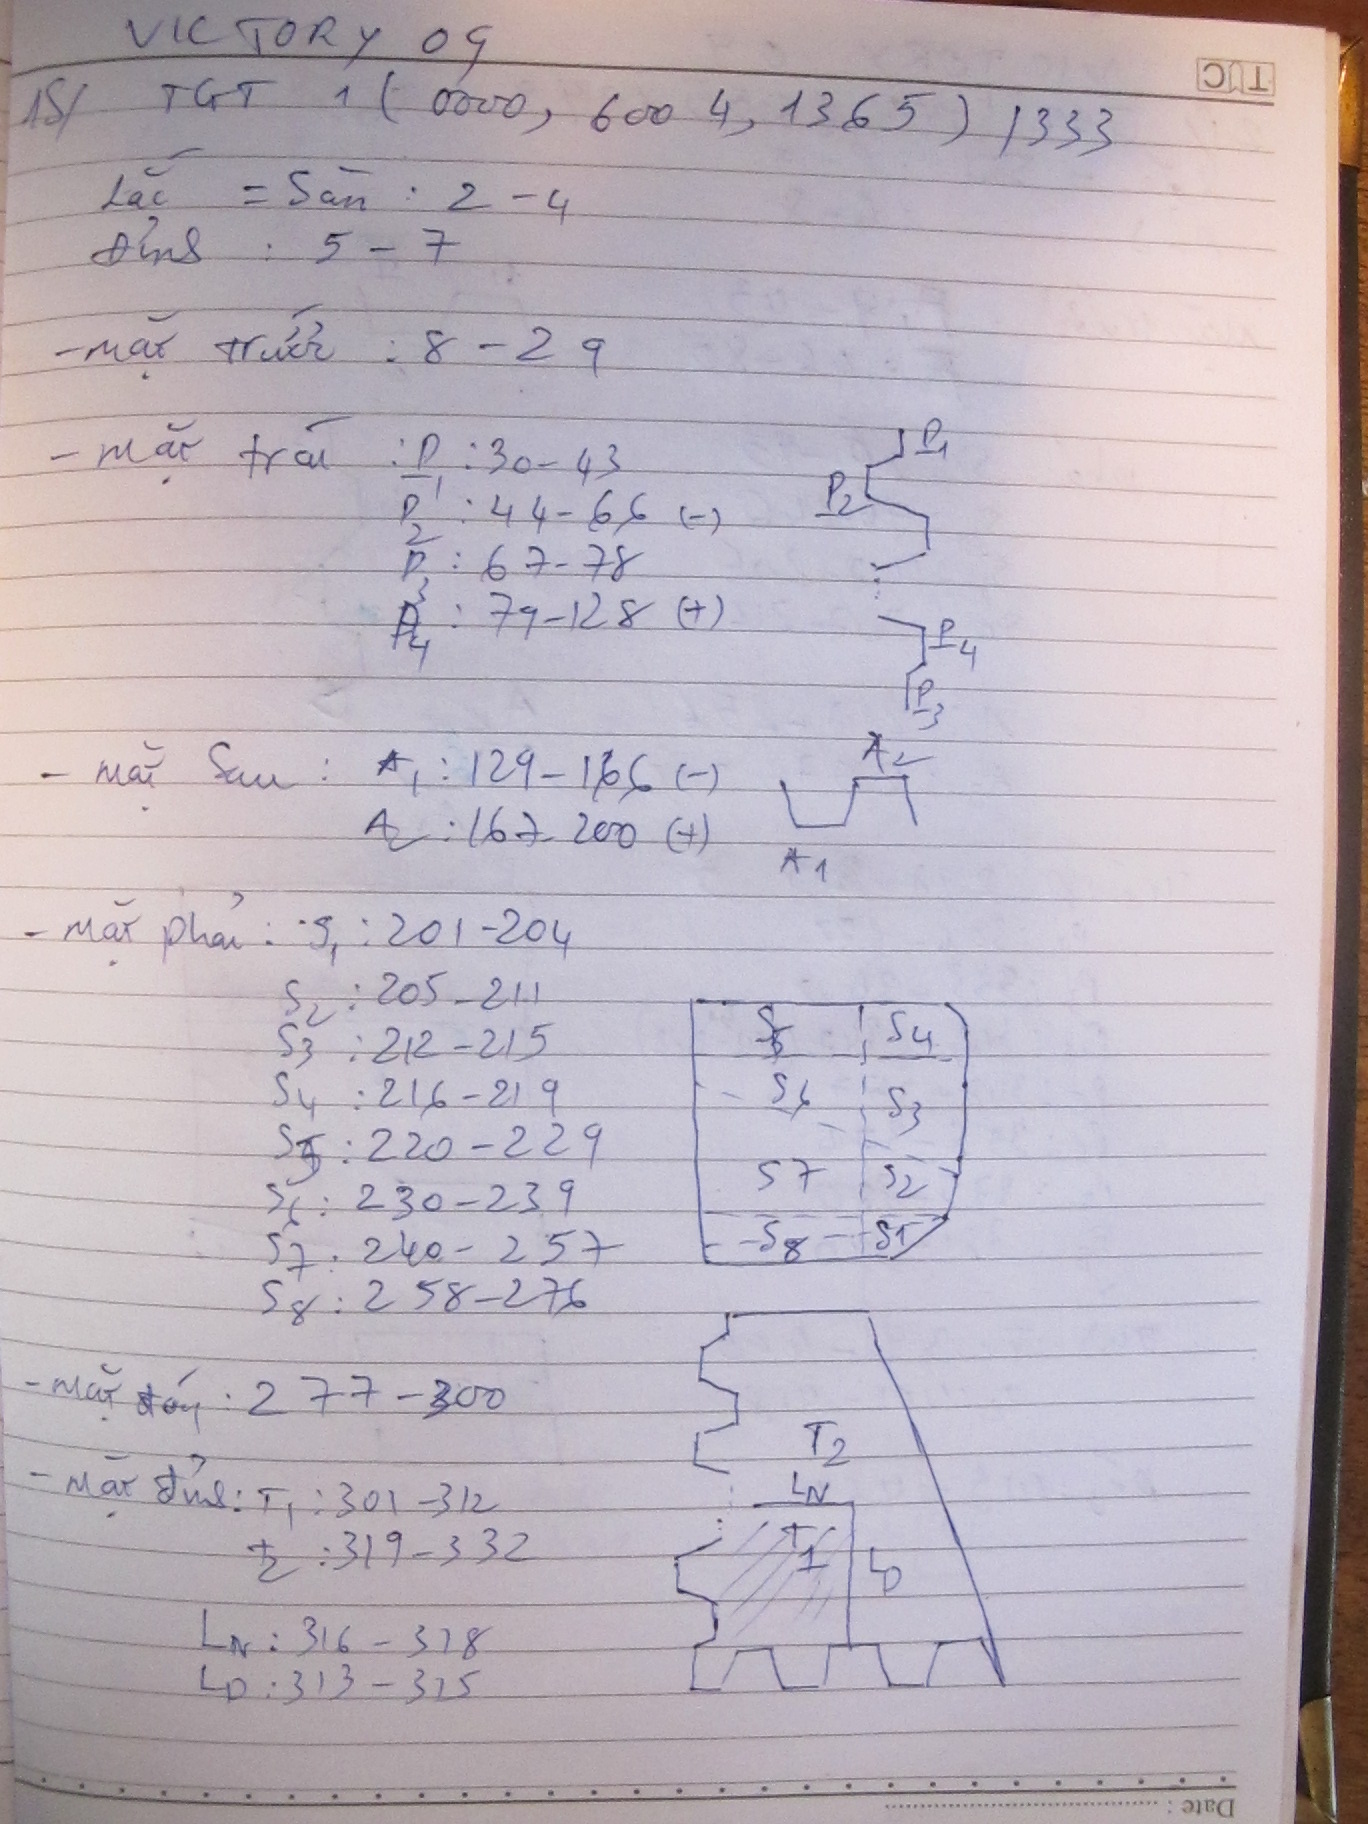 VICTORY 09
TC
15/ TGT 1 (0000, 6004, 1365) /333
Lắc = Sàn : 2 - 4
đỉnh : 5 - 7
- mặt trước : 8 - 29
- mặt trái : P1 : 30 - 43
P2 : 44 - 66 (-)
P3 : 67 - 78
P4 : 79 - 128 (+)
P1
P2
P4
P3
- mặt Sau : A1 : 129 - 166 (-)
A2 : 167 - 200 (+)
A2
A1
- mặt phải : S1 : 201 - 204
S2 : 205 - 211
S3 : 212 - 215
S4 : 216 - 219
S5 : 220 - 229
S6 : 230 - 239
S7 : 240 - 257
S8 : 258 - 276
S5 S4
S6 S3
S7 S2
S8 S1
- mặt đáy : 277 - 300
- mặt đỉnh : T1 : 301 - 312
T2 : 319 - 332
LN : 316 - 318
LD : 313 - 315
T2
LN
T1 LD
Date :